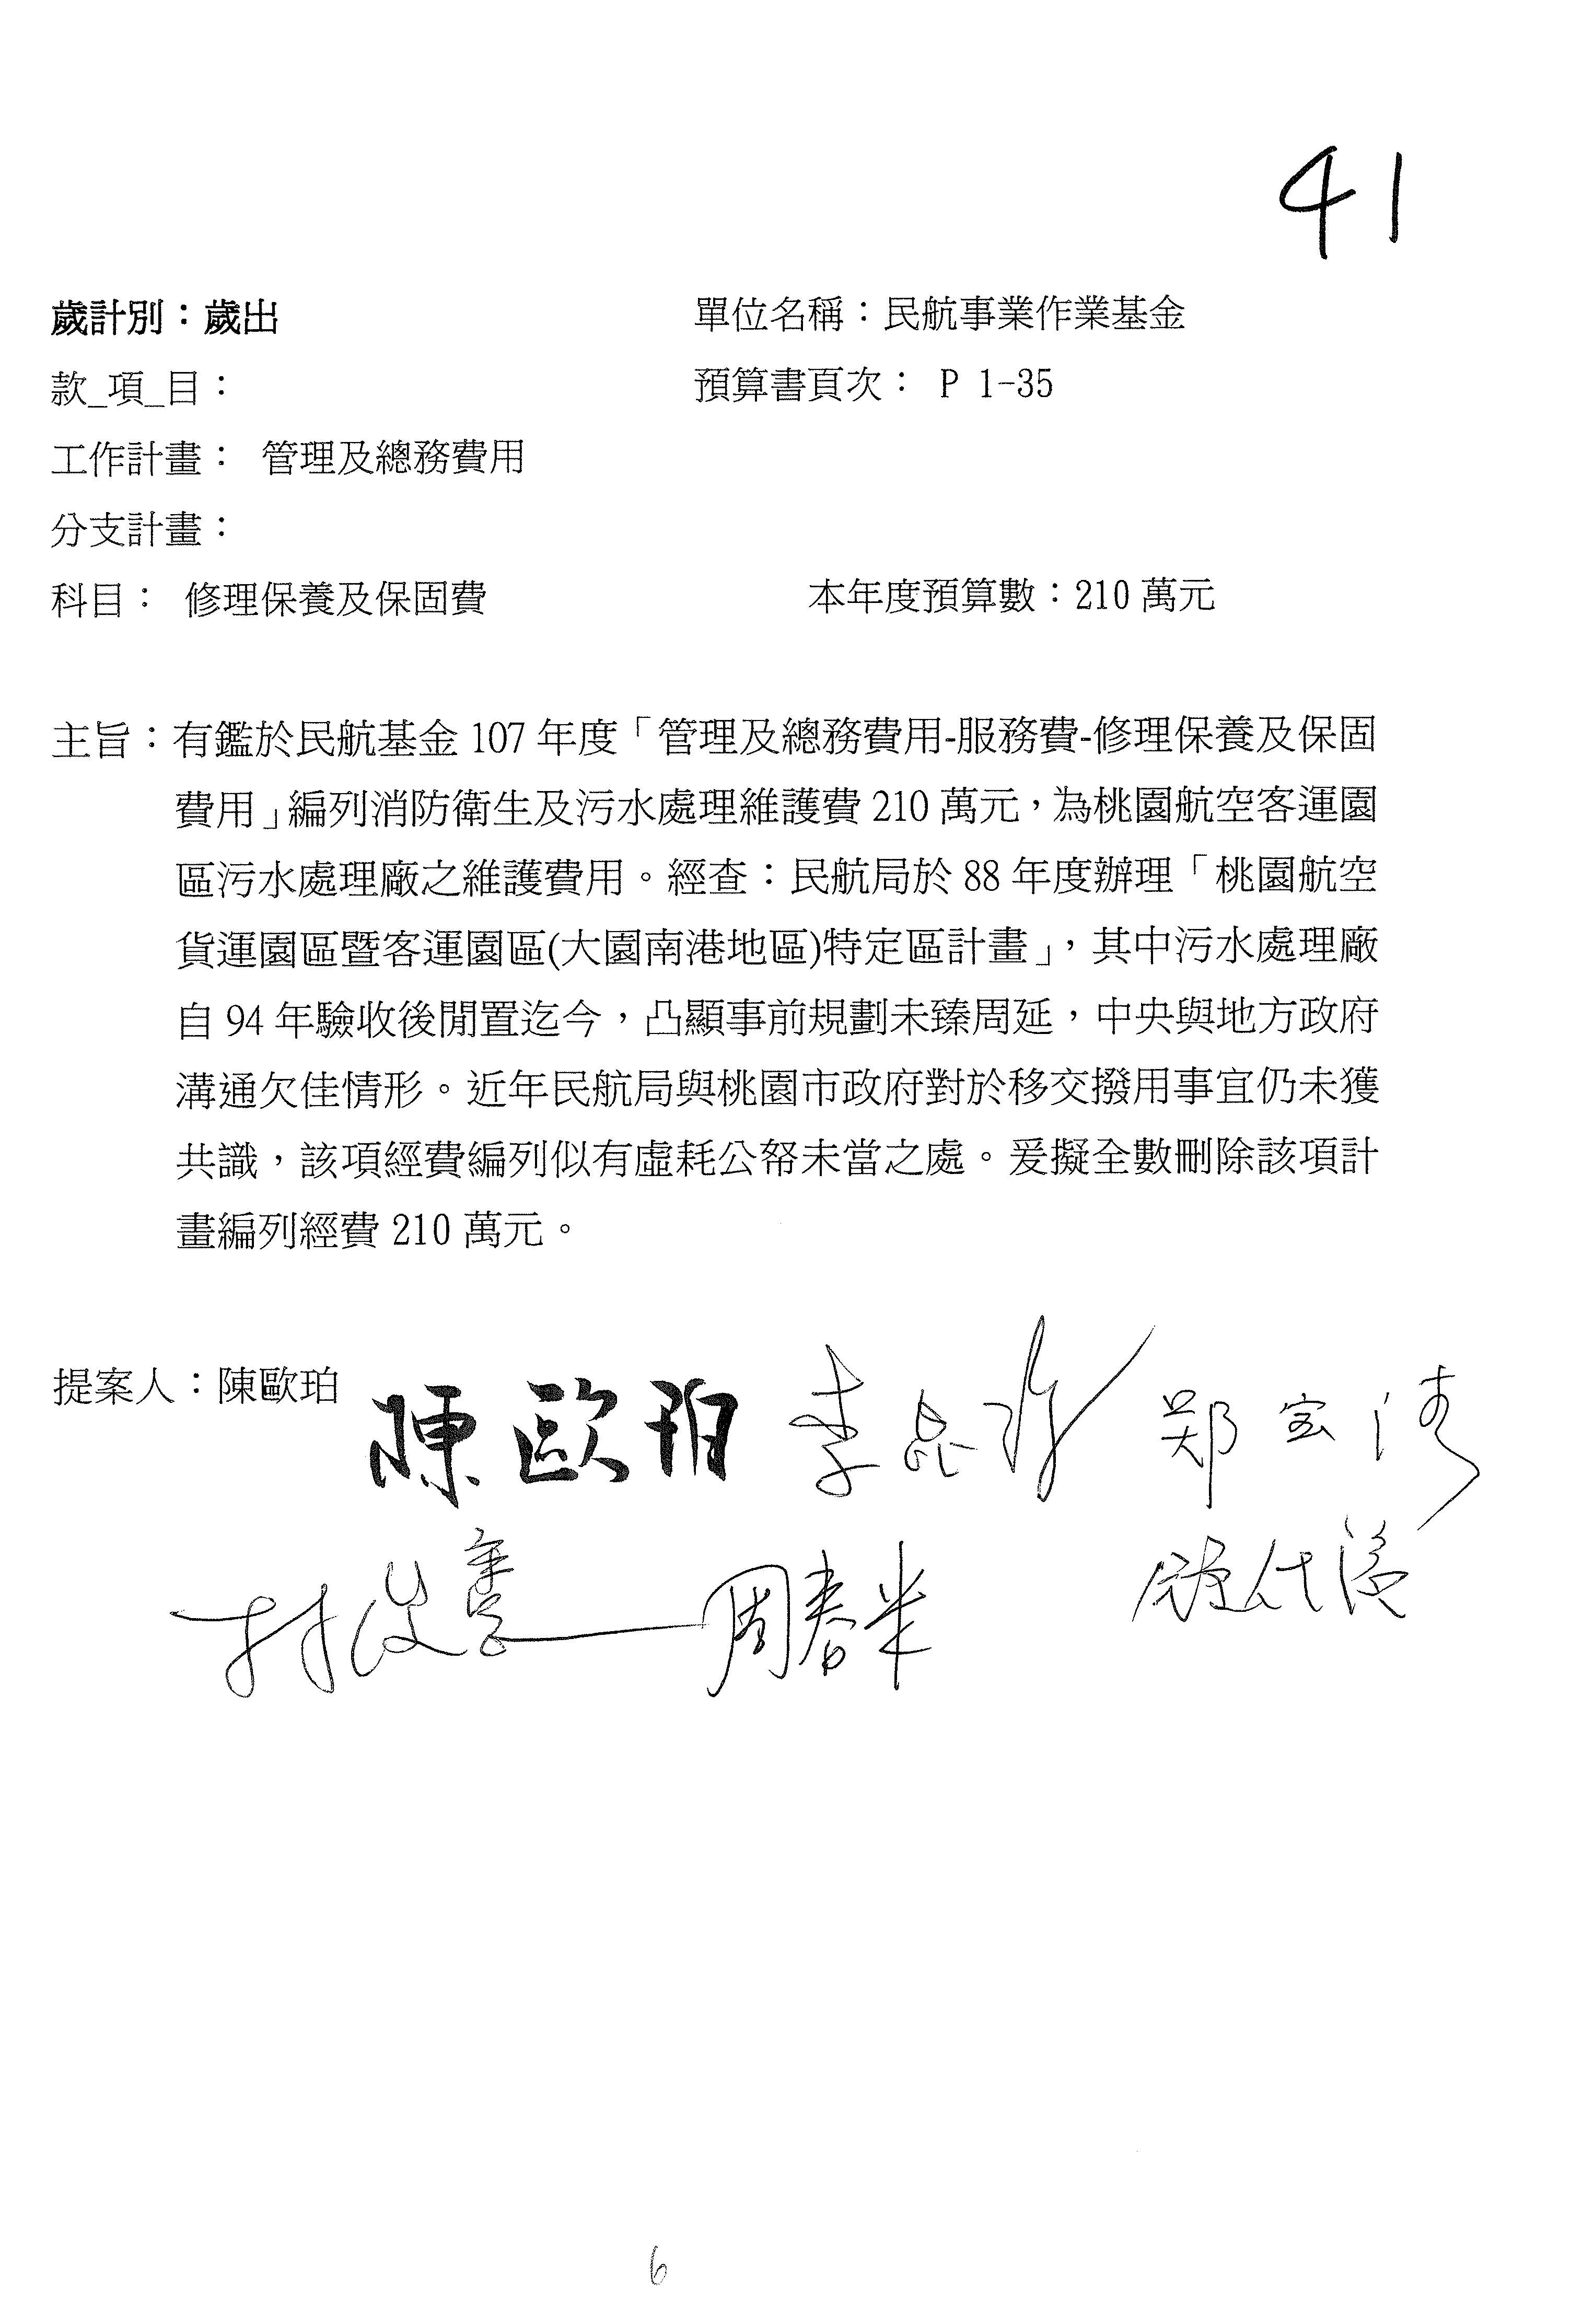 41
歲計別：歲出 單位名稱：民航事業作業基金
款_項_目： 預算書頁次： P 1-35
工作計畫： 管理及總務費用
分支計畫：
科目： 修理保養及保固費 本年度預算數：210 萬元
主旨：有鑑於民航基金 107 年度「管理及總務費用-服務費-修理保養及保固
費用」編列消防衛生及污水處理維護費 210 萬元，為桃園航空客運園
區污水處理廠之維護費用。經查：民航局於 88 年度辦理「桃園航空
貨運園區暨客運園區(大園南港地區)特定區計畫」，其中污水處理廠
自 94 年驗收後閒置迄今，凸顯事前規劃未臻周延，中央與地方政府
溝通欠佳情形。近年民航局與桃園市政府對於移交撥用事宜仍未獲
共識，該項經費編列似有虛耗公帑未當之處。爰擬全數刪除該項計
畫編列經費 210 萬元。
提案人：陳歐珀 陳歐珀 李昆澤 鄭宝清
林俊憲 周春米
6